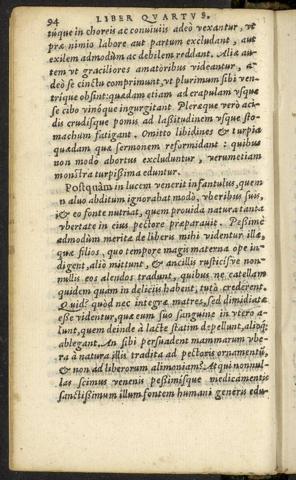 94 LIBER QVARTVS.
túque in choreis ac conuiuiis adeò vexantur, vt
præ nimio labore aut partum excludant, aut
exilem admodùm ac debilem reddant. Aliæ au-
tem vt graciliores amatoribus videantur, a-
deò se cinctu comprimunt, vt plurimum sibi ven-
trique obsint: quædam etiam ad crapulam vsque
se cibo vinóque ingurgitant. Pleræque verò aci-
dis crudisque pomis ad lassitudinem vsque sto-
machum fatigant. Omitto libidines & turpia
quædam quæ sermonem reformidant: quibus
non modò abortus excluduntur, verumetiam
monstra turpissima eduntur.
Postquàm in lucem venerit infantulus, quem
n aluo abditum ignorabat modò, vberibus suis,
i& eo fonte nutriat, quem prouida natura tanta
vbertate in eius pectore præparauit. Pessimè
admodùm meritæ de liberis mihi videntur illæ,
quæ filios, quo tempore magis materna ope in-
digent, aliò mittunt, & ancillis rusticísve non-
nullis eos alendos tradunt, quibus ne catellam
quidem quàm in deliciis habent, tutò crederent.
Quid? quòd nec integræ matres, sed dimidiatæ
esse videntur, quæ eum suo sanguine in vtero a-
lunt, quem deinde à lacte statim depellunt, alioq;
ablegant. An sibi persuadent mammarum vbe-
ra à natura illis tradita ad pectoris ornamentũ,
& non ad liberorum alimoniam? At qui nonnul-
las scimus venenis pessimisque medicamentis
sanctissimum illum fontem humani generis edu-